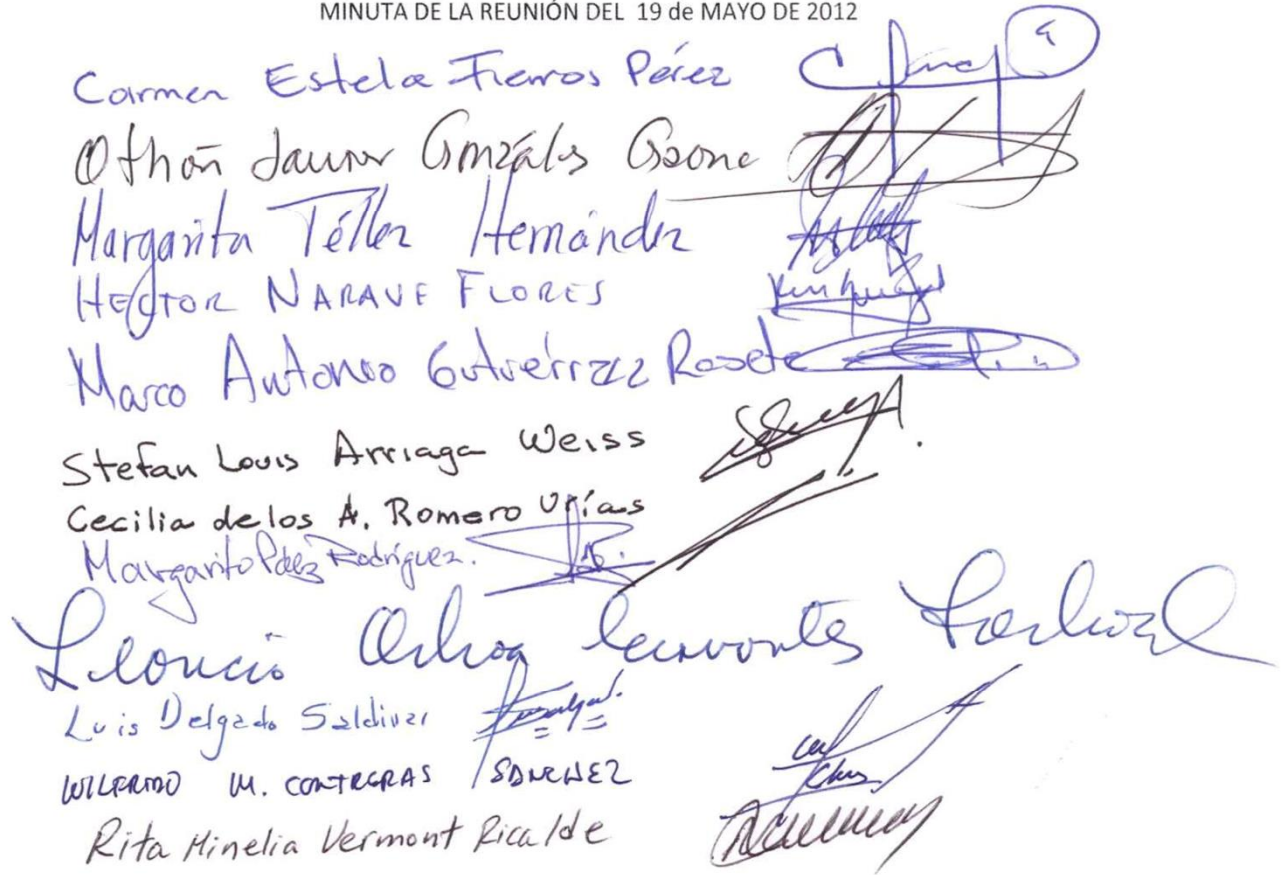 MINUTA DE LA REUNIÓN DEL 19 de MAYO DE 2012
Carmen Estela Fierros Pérez
Othón González
Margarita Téllez Hernández
HECTOR NARAVE FLORES
Marco Antonio Gutiérrez Rosete
Stefan Louis Arriaga Weiss
Cecilia de los A. Romero Urías
Margarito Páez Rodríguez.
Leoncio Ochoa Cervantes
Luis Delgado Saldivar
WILFRIDO M. CONTRERAS SANCHEZ
Rita Minelia Vermont Ricalde